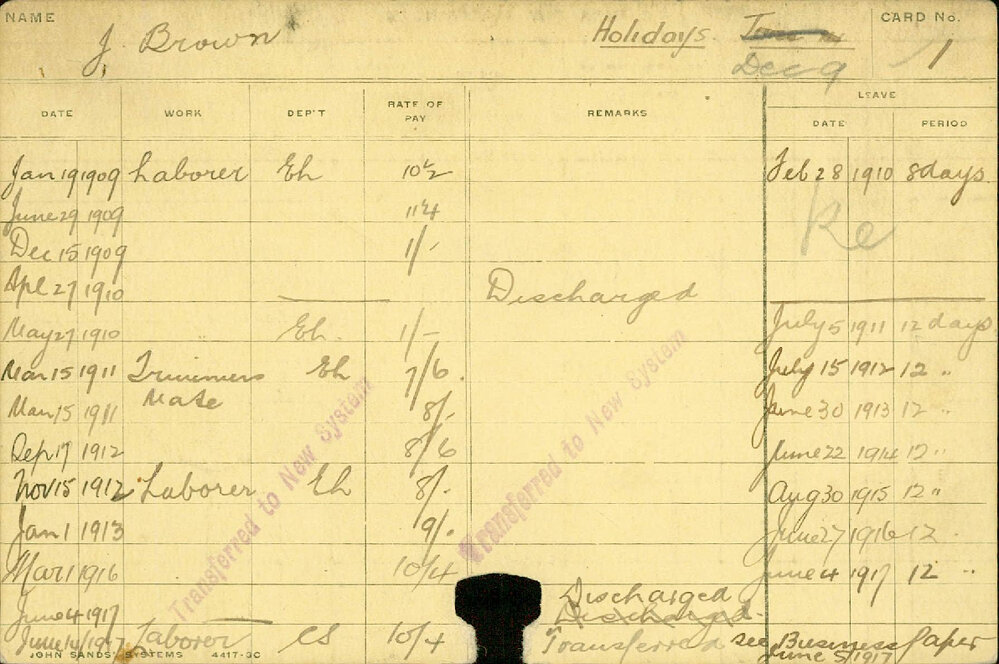 NAME J. Brown Holidays. June 14 CARD No. 1
Dec 9
LEAVE
DATE WORK DEP'T RATE OF PAY REMARKS DATE PERIOD
Jan 19 1909 Laborer Eh 10½ Feb 28 1910 8 days
June 29 1909 11¼ Re
Dec 15 1909 1/-
Apl 27 1910 Discharged
May 27 1910 Eh. 1/- July 5 1911 12 days
Mar 15 1911 Trimmers Mate Eh 7/6. July 15 1912 12 "
Mar 15 1911 8/- June 30 1913 12 "
Sep 17 1912 8/6 June 22 1914 12 "
Nov 15 1912 Laborer Eh 8/- Aug 30 1915 12 "
Jan 1 1913 9/- June 27 1916 12.
Mar 1 1916 10/4 June 4 1917 12 "
Discharged
June 4 1917 Discharged
June 14/1917 Laborer CS 10/4 Transferred see Business Paper
June 5/1917
Transferred to New System
Transferred to New System
JOHN SANDS' SYSTEMS 4417-3C